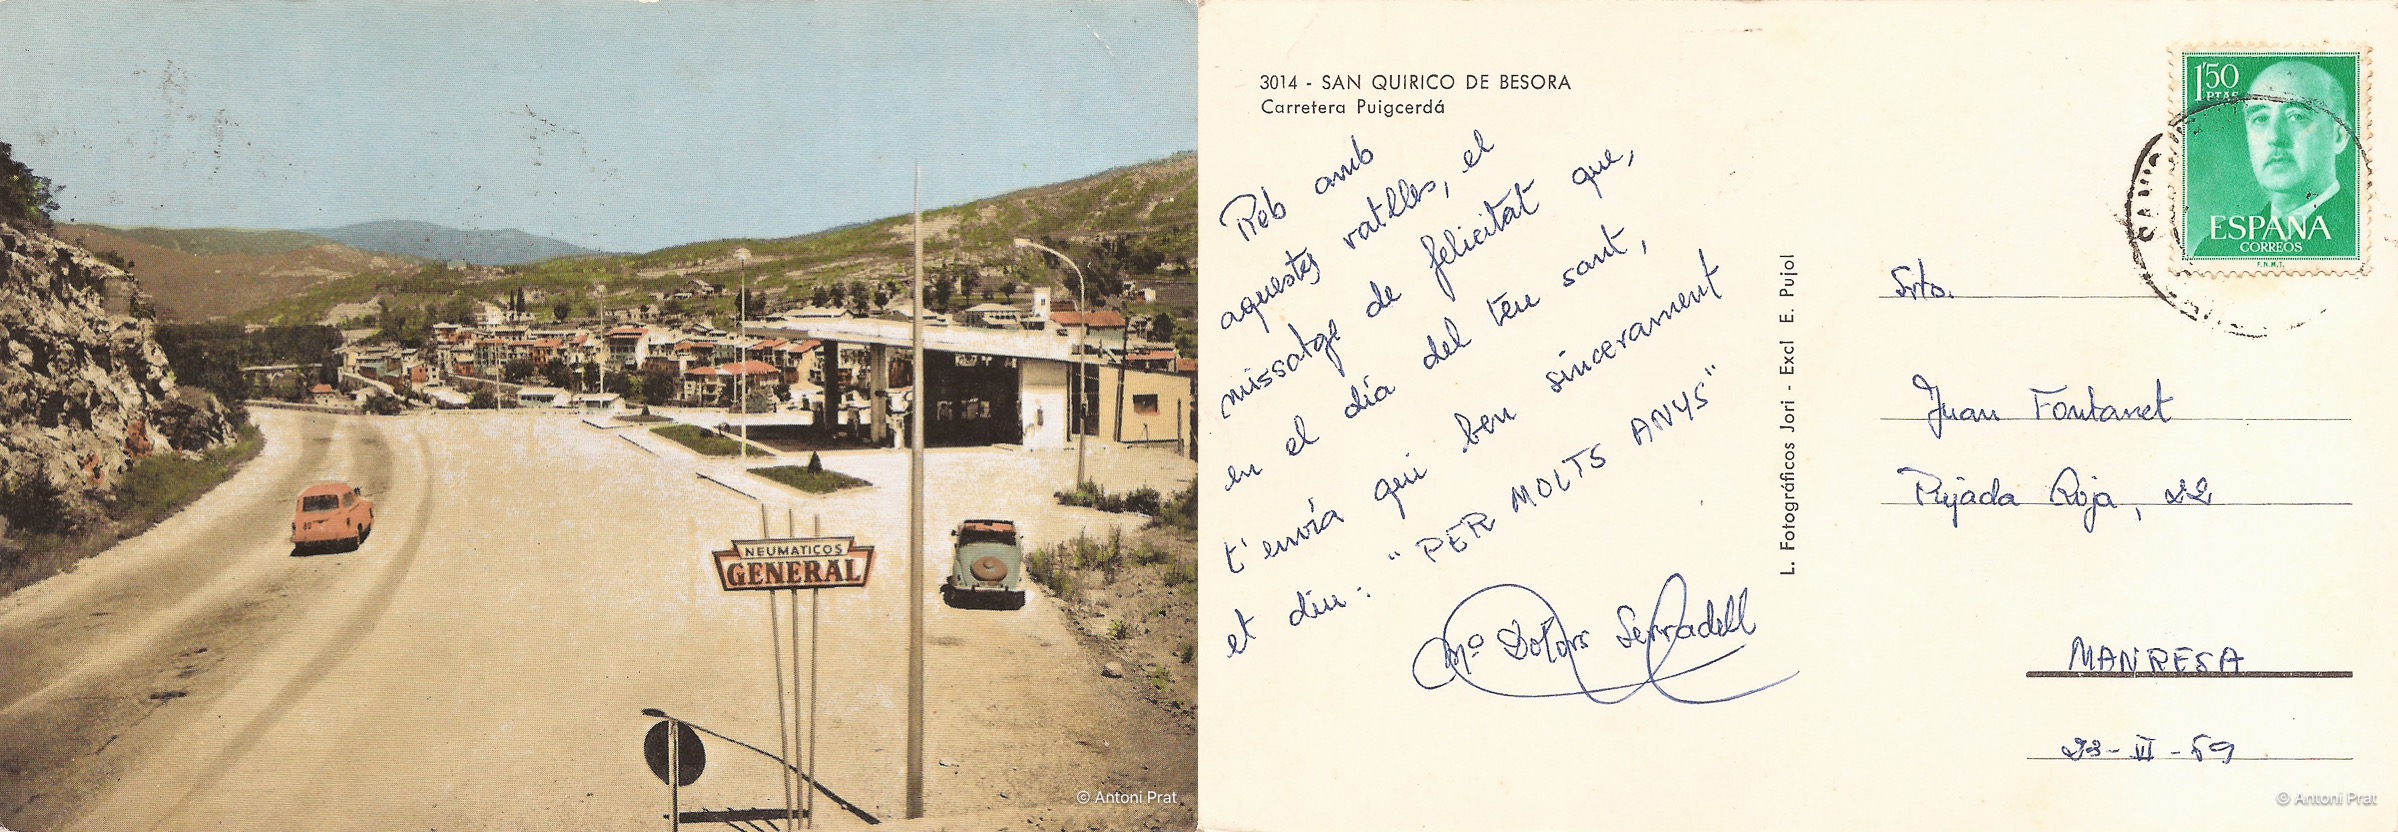 BO
NEUMATICOS
GENERAL
© Antoni Prat
3014 - SAN QUIRICO DE BESORA
Carretera Puigcerdá
Reb amb
aquestes ratlles, el
missatge de felicitat que,
en el día del teu sant,
t'envía qui ben sincerament
et diu: "PER MOLTS ANYS"
Mª Dolors Serradell
L. Fotográficos Jori - Excl E. Pujol
1'50
PTAS
ESPAÑA
CORREOS
F.N.M.T.
Srto.
Juan Fontanet
Pujada Roja, 22
MANRESA
23-VI-69
© Antoni Prat